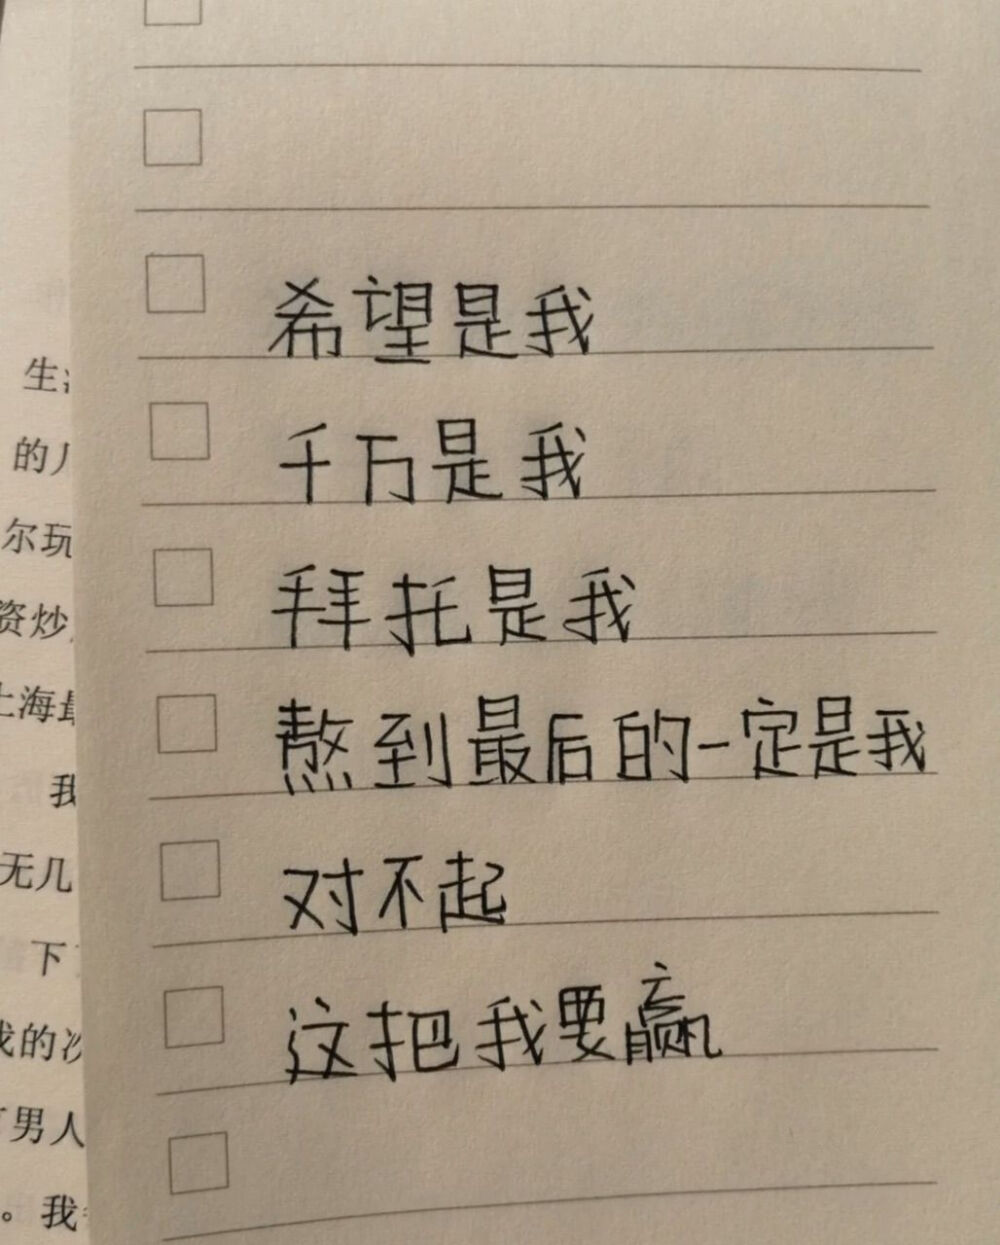 希望是我
千万是我
拜托是我
熬到最后的一定是我
对不起
这把我要赢
生活
的
尔玩
资炒
上海最
我
无几
下
我的次
男人
。我